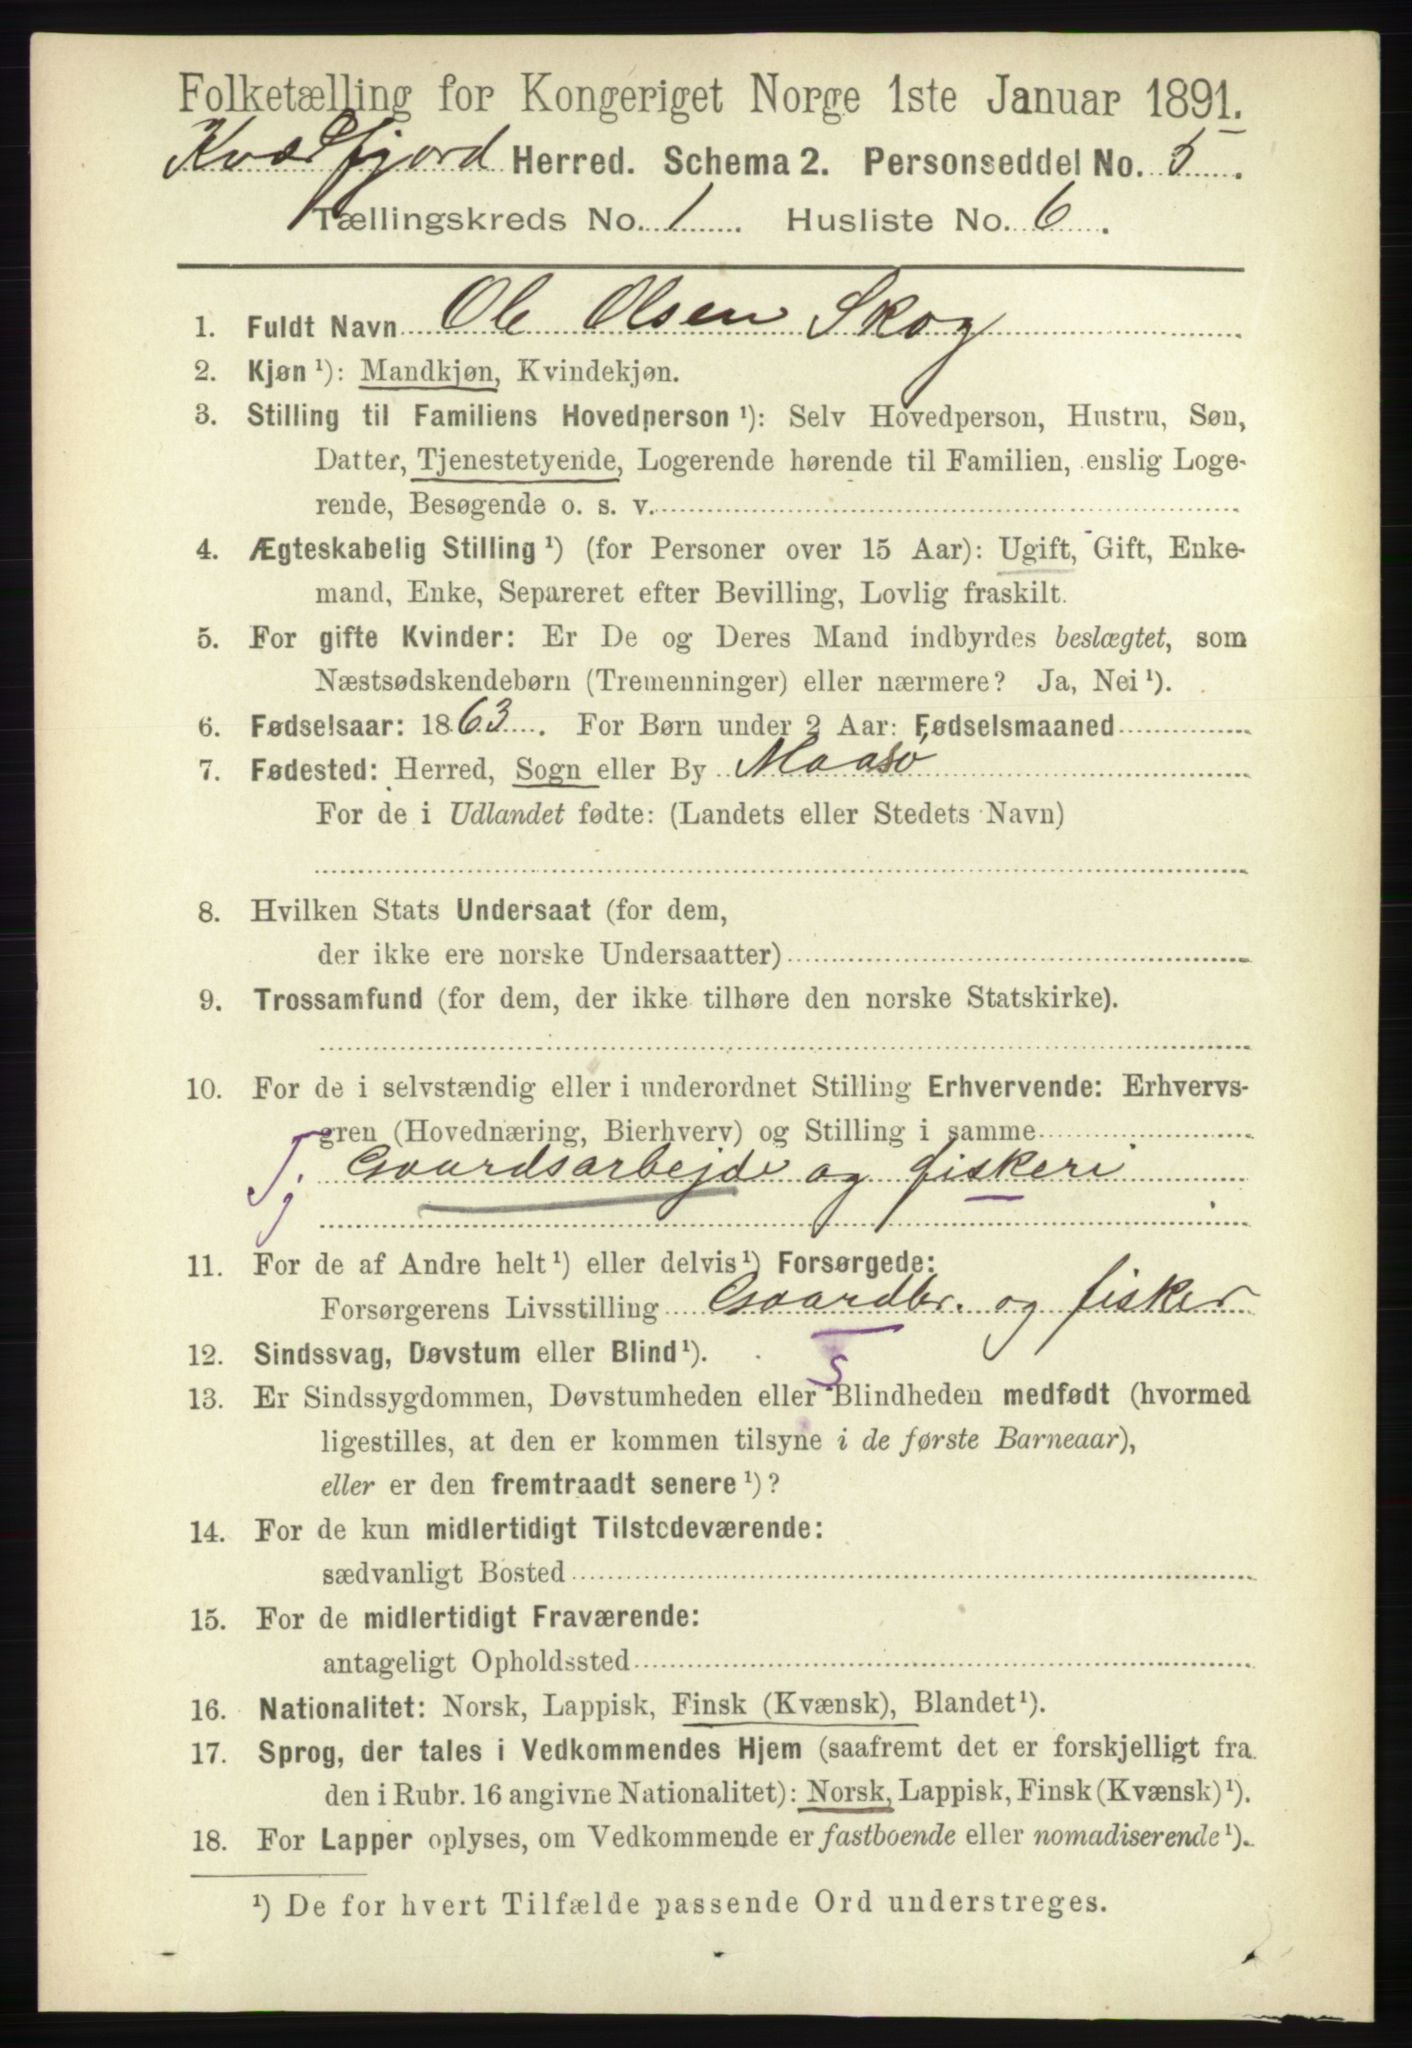 Folketælling for Kongeriget Norge 1ste Januar 1891.
Kvædfjord Herred. Schema 2. Personseddel No. 5.
Tællingskreds No. 1. Husliste No. 6.
1. Fuldt Navn Ole Olsen Skog
2. Kjøn ¹): Mandkjøn, Kvindekjøn.
3. Stilling til Familiens Hovedperson ¹): Selv Hovedperson, Hustru, Søn,
Datter, Tjenestetyende, Logerende hørende til Familien, enslig Loge-
rende, Besøgende o. s. v.
4. Ægteskabelig Stilling ¹) (for Personer over 15 Aar): Ugift, Gift, Enke-
mand, Enke, Separeret efter Bevilling, Lovlig fraskilt.
5. For gifte Kvinder: Er De og Deres Mand indbyrdes beslægtet, som
Næstsødskendebørn (Tremenninger) eller nærmere? Ja, Nei ¹).
6. Fødselsaar: 1863. For Børn under 2 Aar: Fødselsmaaned
7. Fødested: Herred, Sogn eller By Maasø
For de i Udlandet fødte: (Landets eller Stedets Navn)
8. Hvilken Stats Undersaat (for dem,
der ikke ere norske Undersaatter)
9. Trossamfund (for dem, der ikke tilhøre den norske Statskirke).
10. For de i selvstændig eller i underordnet Stilling Erhvervende: Erhvervs-
gren (Hovednæring, Bierhverv) og Stilling i samme
Tj Gaardsarbejde og fiskeri
11. For de af Andre helt ¹) eller delvis ¹) Forsørgede:
Forsørgerens Livsstilling Gaardbr. og fisker
12. Sindssvag, Døvstum eller Blind ¹).
S
13. Er Sindssygdommen, Døvstumheden eller Blindheden medfødt (hvormed
ligestilles, at den er kommen tilsyne i de første Barneaar),
eller er den fremtraadt senere ¹)?
14. For de kun midlertidigt Tilstedeværende:
sædvanligt Bosted
15. For de midlertidigt Fraværende:
antageligt Opholdssted
16. Nationalitet: Norsk, Lappisk, Finsk (Kvænsk), Blandet ¹).
17. Sprog, der tales i Vedkommendes Hjem (saafremt det er forskjelligt fra
den i Rubr. 16 angivne Nationalitet): Norsk, Lappisk, Finsk (Kvænsk) ¹).
18. For Lapper oplyses, om Vedkommende er fastboende eller nomadiserende ¹).
¹) De for hvert Tilfælde passende Ord understreges.